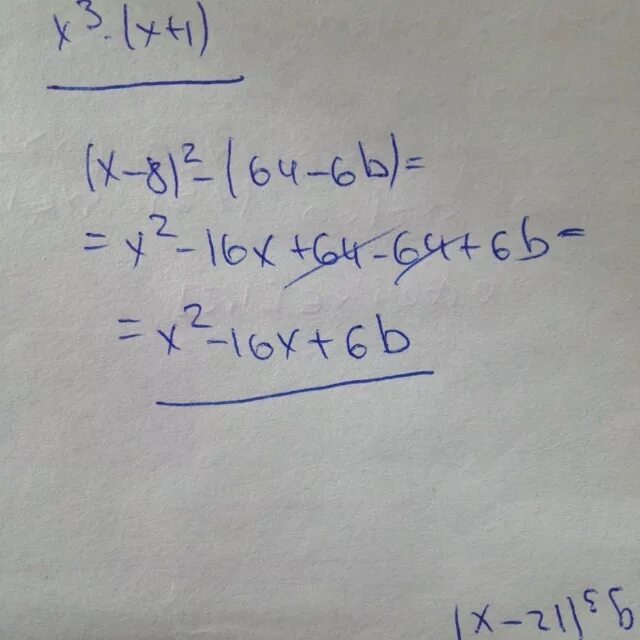 x³·(x+1)
(x-8)²-(64-6b)=
=x²-16x+64-64+6b=
=x²-16x+6b